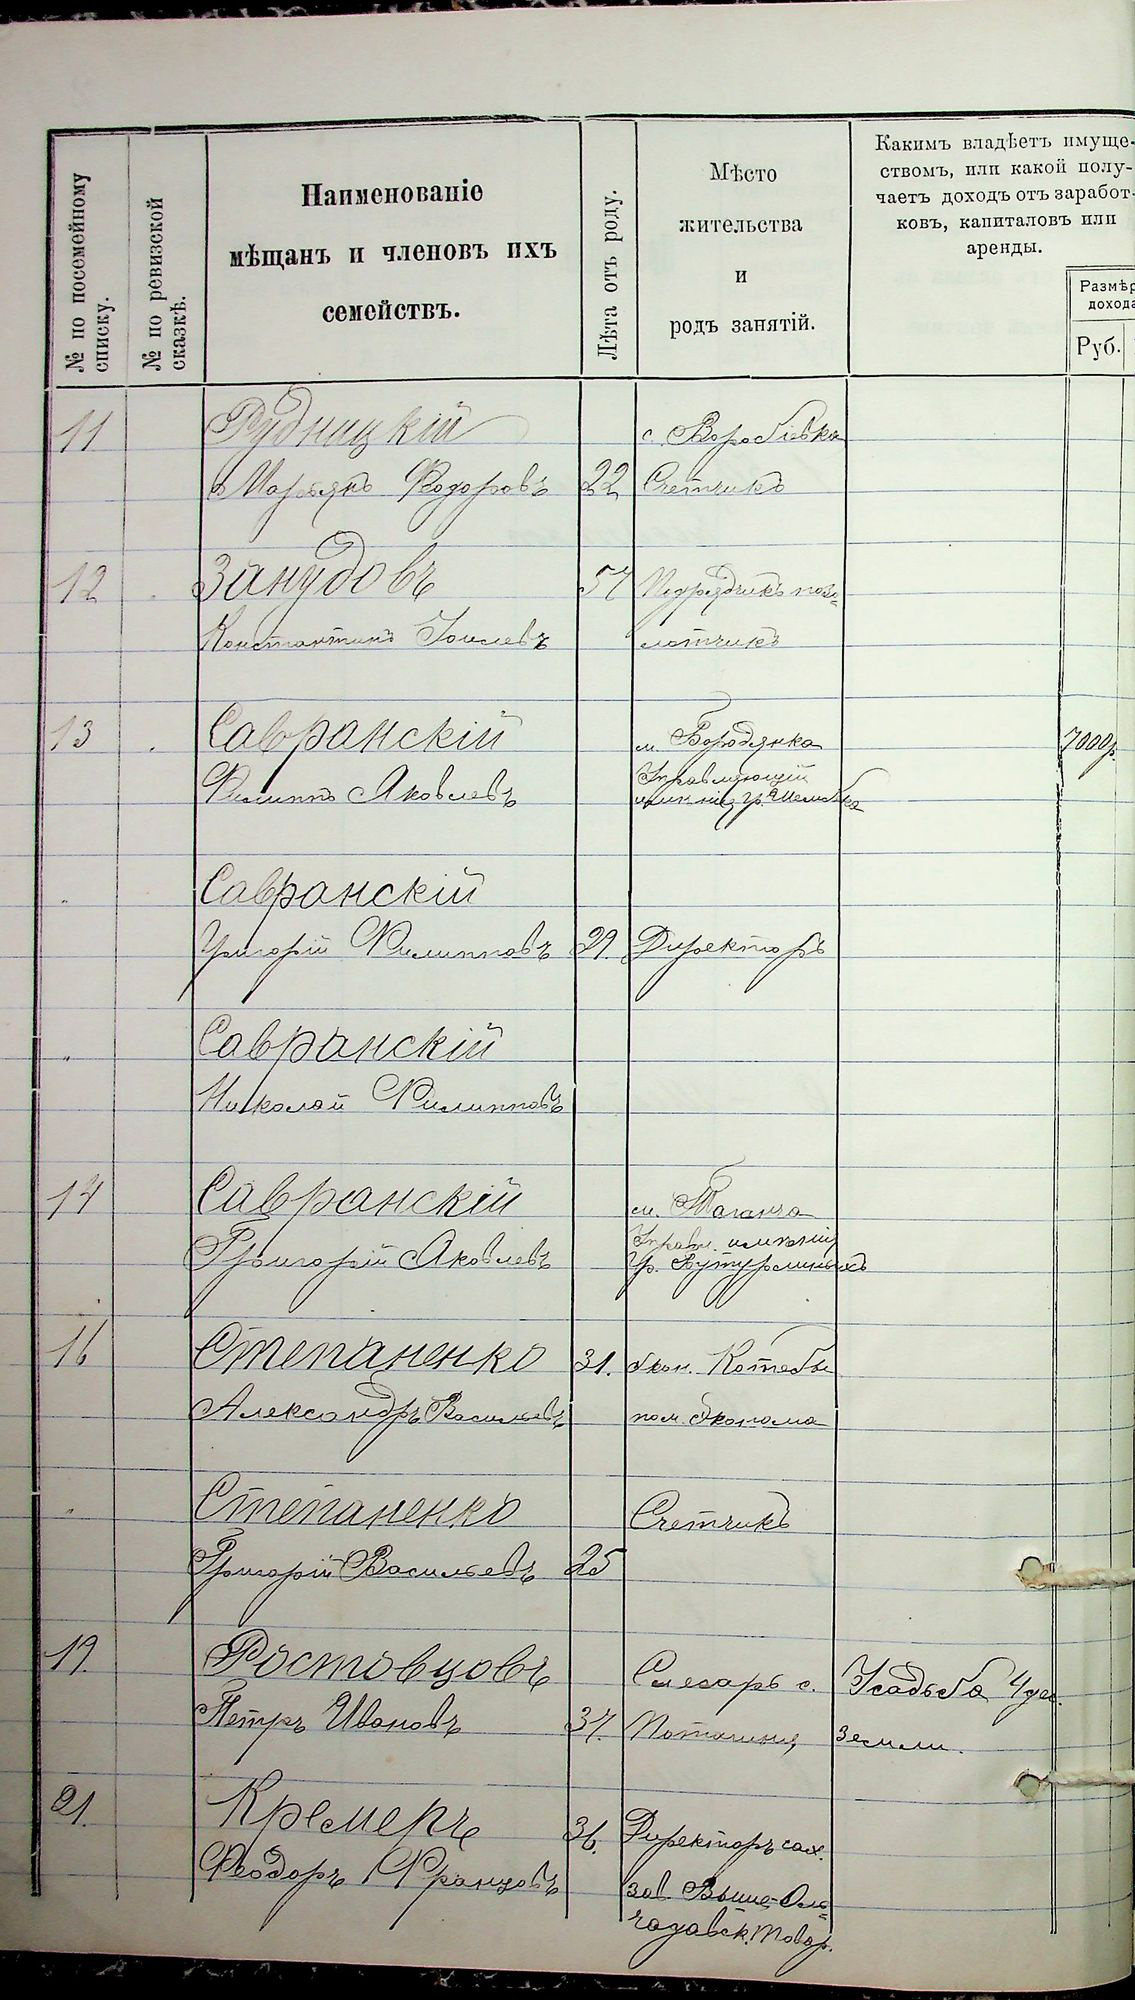 № по посемейному
списку.
№ по ревизской
сказкѣ.
Наименованіе
мѣщанъ и членовъ ихъ
семействъ.
Лѣта отъ роду.
Мѣсто
жительства
и
родъ занятій.
Какимъ владѣетъ имуще-
ствомъ, или какой полу-
чаетъ доходъ отъ заработ-
ковъ, капиталовъ или
аренды.
Размѣр
дохода
Руб.
11 Рудницкій с. Воробіевка
Марьянъ Фодоровъ 22 Счетчикъ
12 Занудовъ 57 Подрядчикъ позо-
Константинъ лотчикъ
13 Савранскій м. Бородянка 7000р.
Филиппъ Яковлевъ Управляющій
имѣнія гр.
" Савранскій
Григорій Филипповъ 29. Директоръ
" Савранскій
Николай Филипповъ
14 Савранскій м. Таганча
Григорій Яковлевъ Управл. имѣній
гр.
16 Степаненко 31. экон.
Александръ Васильевъ пом. Эконома
" Степаненко Счетчикъ
Григорій Васильевъ 25
19. Ростовцовъ Слесарь с. Усадьба 4 дес.
Петръ Ивановъ 37. земли.
21. Кремеръ 36. Директоръ сах.
Феодоръ Францовъ зав. Выше-Оль-
чадаевск. Товар.